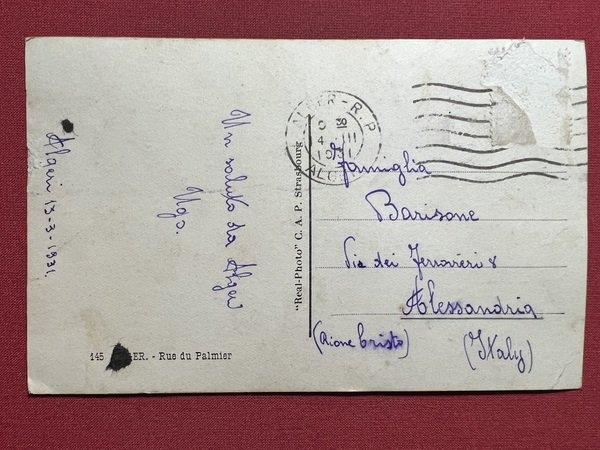 Algeri 13-3-1931.
Un saluto da Alger
Ugo.
145 ER. - Rue du Palmier
"Real-Photo" C. A. P. Strasbourg
ALGER - R.P
30
4 III
1931
ALGER
Famiglia
Barisone
Via dei Ferrovieri 8
Alessandria
(Rione Cristo)
(Italy)